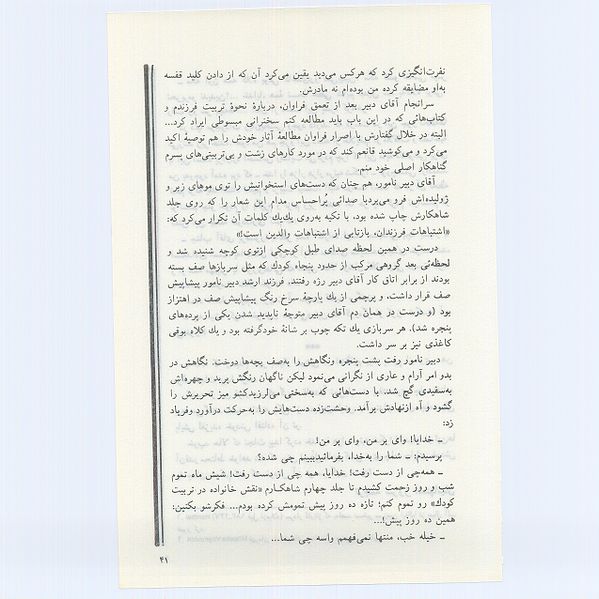 نفرت‌انگیزی کرد که هرکس می‌دید یقین می‌کرد آن که از دادن کلید قفسه
به‌او مضایقه کرده من بوده‌ام نه مادرش.
سرانجام آقای دبیر بعد از تعمق فراوان، دربارهٔ نحوهٔ تربیت فرزندم و
کتاب‌هائی که در این باب باید مطالعه کنم سخنرانی مبسوطی ایراد کرد...
البته در خلال گفتارش با اصرار فراوان مطالعهٔ آثار خودش را هم توصیهٔ اکید
می‌کرد و می‌کوشید قانعم کند که در مورد کارهای زشت و بی‌تربیتی‌های پسرم
گناهکار اصلی خود منم.
آقای دبیر نامور، هم چنان که دست‌های استخوانیش را توی موهای زبر و
ژولیده‌اش فرو می‌برد با صدائی پُراحساس مدام این شعار را که روی جلد
شاهکارش چاپ شده بود، با تکیه به‌روی یك‌یك کلمات آن تکرار می‌کرد که:
«اشتباهات فرزندان، بازتابی از اشتباهات والدین است!»
درست در همین لحظه صدای طبل کوچکی ازتوی کوچه شنیده شد و
لحظه‌ئی بعد گروهی مرکب از حدود پنجاه کودك که مثل سربازها صف بسته
بودند از برابر اتاق کار آقای دبیر رژه رفتند. فرزند ارشد دبیر نامور پیشاپیش
صف قرار داشت، و پرچمی از یك پارچهٔ سرخ رنگ پیشاپیش صف در اهتزاز
بود (و درست در همان دم آقای دبیر متوجهٔ ناپدید شدن یکی از پرده‌های
پنجره شد). هر سربازی یك تکه چوب بر شانهٔ خودگرفته بود و یك کلاه بوقی
کاغذی نیز بر سر داشت.
دبیر نامور رفت پشت پنجره ونگاهش را به‌صف بچه‌ها دوخت. نگاهش در
بدو امر آرام و عاری از نگرانی می‌نمود لیکن ناگهان رنگش پرید و چهره‌اش
به‌سفیدی گچ شد. با دست‌هائی که به‌سختی می‌لرزیدکشو میز تحریرش را
گشود و آه ازنهادش برآمد. وحشت‌زده دست‌هایش را به‌حرکت درآورد وفریاد
زد:
ـ خدایا! وای بر من، وای بر من!
پرسیدم: ـ شما را به‌خدا، بفرمائیدببینم چی شده؟
ـ همه‌چی از دست رفت! خدایا، همه چی از دست رفت! شیش ماه تموم
شب و روز زحمت کشیدم تا جلد چهارم شاهکارم «نقش خانواده در تربیت
کودك» رو تموم کنم؛ تازه ده روز پیش تمومش کرده بودم... فکرشو بکنین:
همین ده روز پیش!...
ـ خیله خب، منتها نمی‌فهمم واسه چی شما...
۴۱